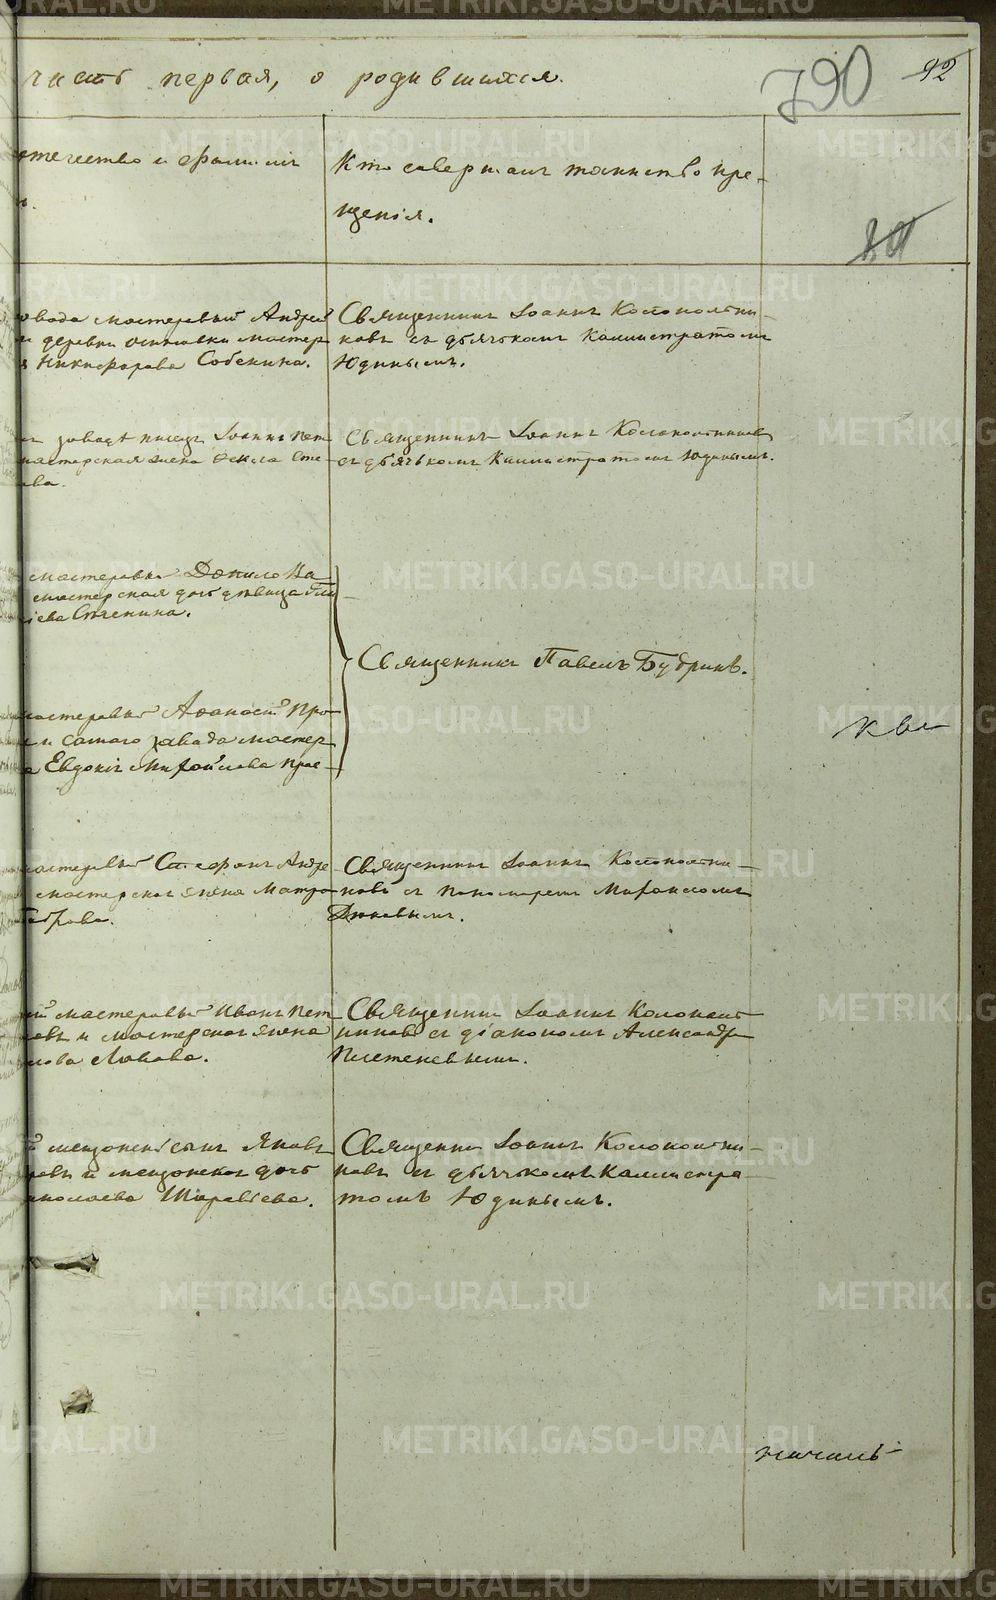 часть первая, о родившихся.
790
92
отчество и фамилия
Кто совершалъ таинство кре-
щенія.
завода мастеровый Андрей
и деревни мастер
Никифорова Собенина.
Священникъ Іоаннъ Колокольни-
ковъ съ дьячкомъ Каллистратомъ
Юдинымъ.
заводѣ писецъ Іоаннъ Пет
мастерская жена Ѳекла Сте
ева.
Священникъ Іоаннъ Колокольниковъ
съ дьячкомъ Каллистратомъ Юдинымъ.
мастеровый Данило
мастерская дочь дѣвица
ева
Священникъ Павелъ Будринъ.
мастеровый Аѳанасій Про
и самаго завода мастер
Евдокія Михайлова Прос-
мастеровый Стефанъ Андре
мастерская жена Матро
Священникъ Іоаннъ Колокольни-
ковъ съ пономаремъ
мастеровый Иванъ Пет
овъ и мастерская жена
Священникъ Іоаннъ Колоколь
никовъ съ діакономъ Александр
Плетеневымъ.
мещанскій сынъ Яковъ
ровъ и мещанская дочь
иколаева
Священникъ Іоаннъ Колокольни-
ковъ съ дьячкомъ Каллистра-
томъ Юдинымъ.
METRIKI.GASO-URAL.RU